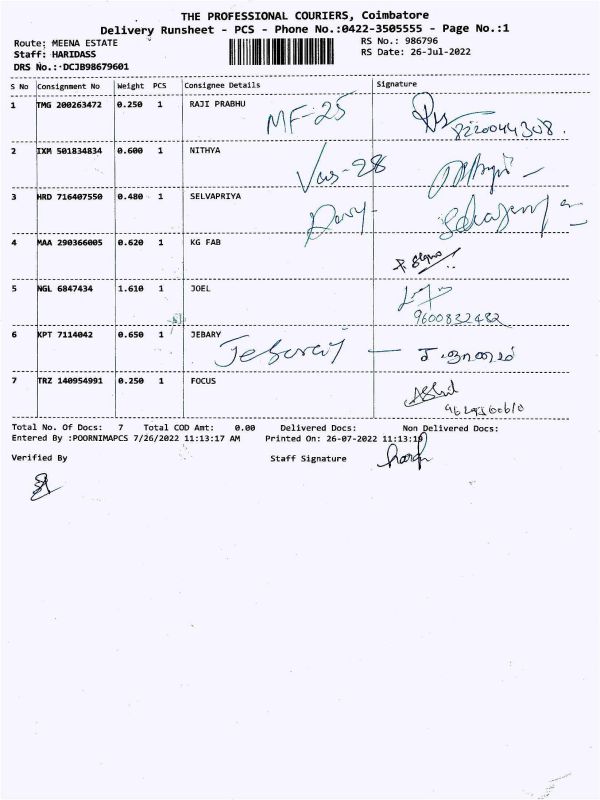 THE PROFESSIONAL COURIERS, Coimbatore
Delivery Runsheet - PCS - Phone No.:0422-3505555 - Page No.:1
Route: MEENA ESTATE RS No.: 986796
Staff: HARIDASS RS Date: 26-Jul-2022
DRS No.: DCJB98679601
S No Consignment No Weight PCS Consignee Details Signature
1 TMG 200263472 0.250 1 RAJI PRABHU MF-25
8220044308.
2 IXM 501834834 0.600 1 NITHYA Vas-28
3 HRD 716407550 0.480 1 SELVAPRIYA
4 MAA 290366005 0.620 1 KG FAB
5 NGL 6847434 1.610 1 JOEL
9600832482
6 KPT 7114042 0.650 1 JEBARY
7 TRZ 140954991 0.250 1 FOCUS
Total No. Of Docs: 7 Total COD Amt: 0.00 Delivered Docs: Non Delivered Docs:
Entered By :POORNIMAPCS 7/26/2022 11:13:17 AM Printed On: 26-07-2022 11:13:19
Verified By Staff Signature